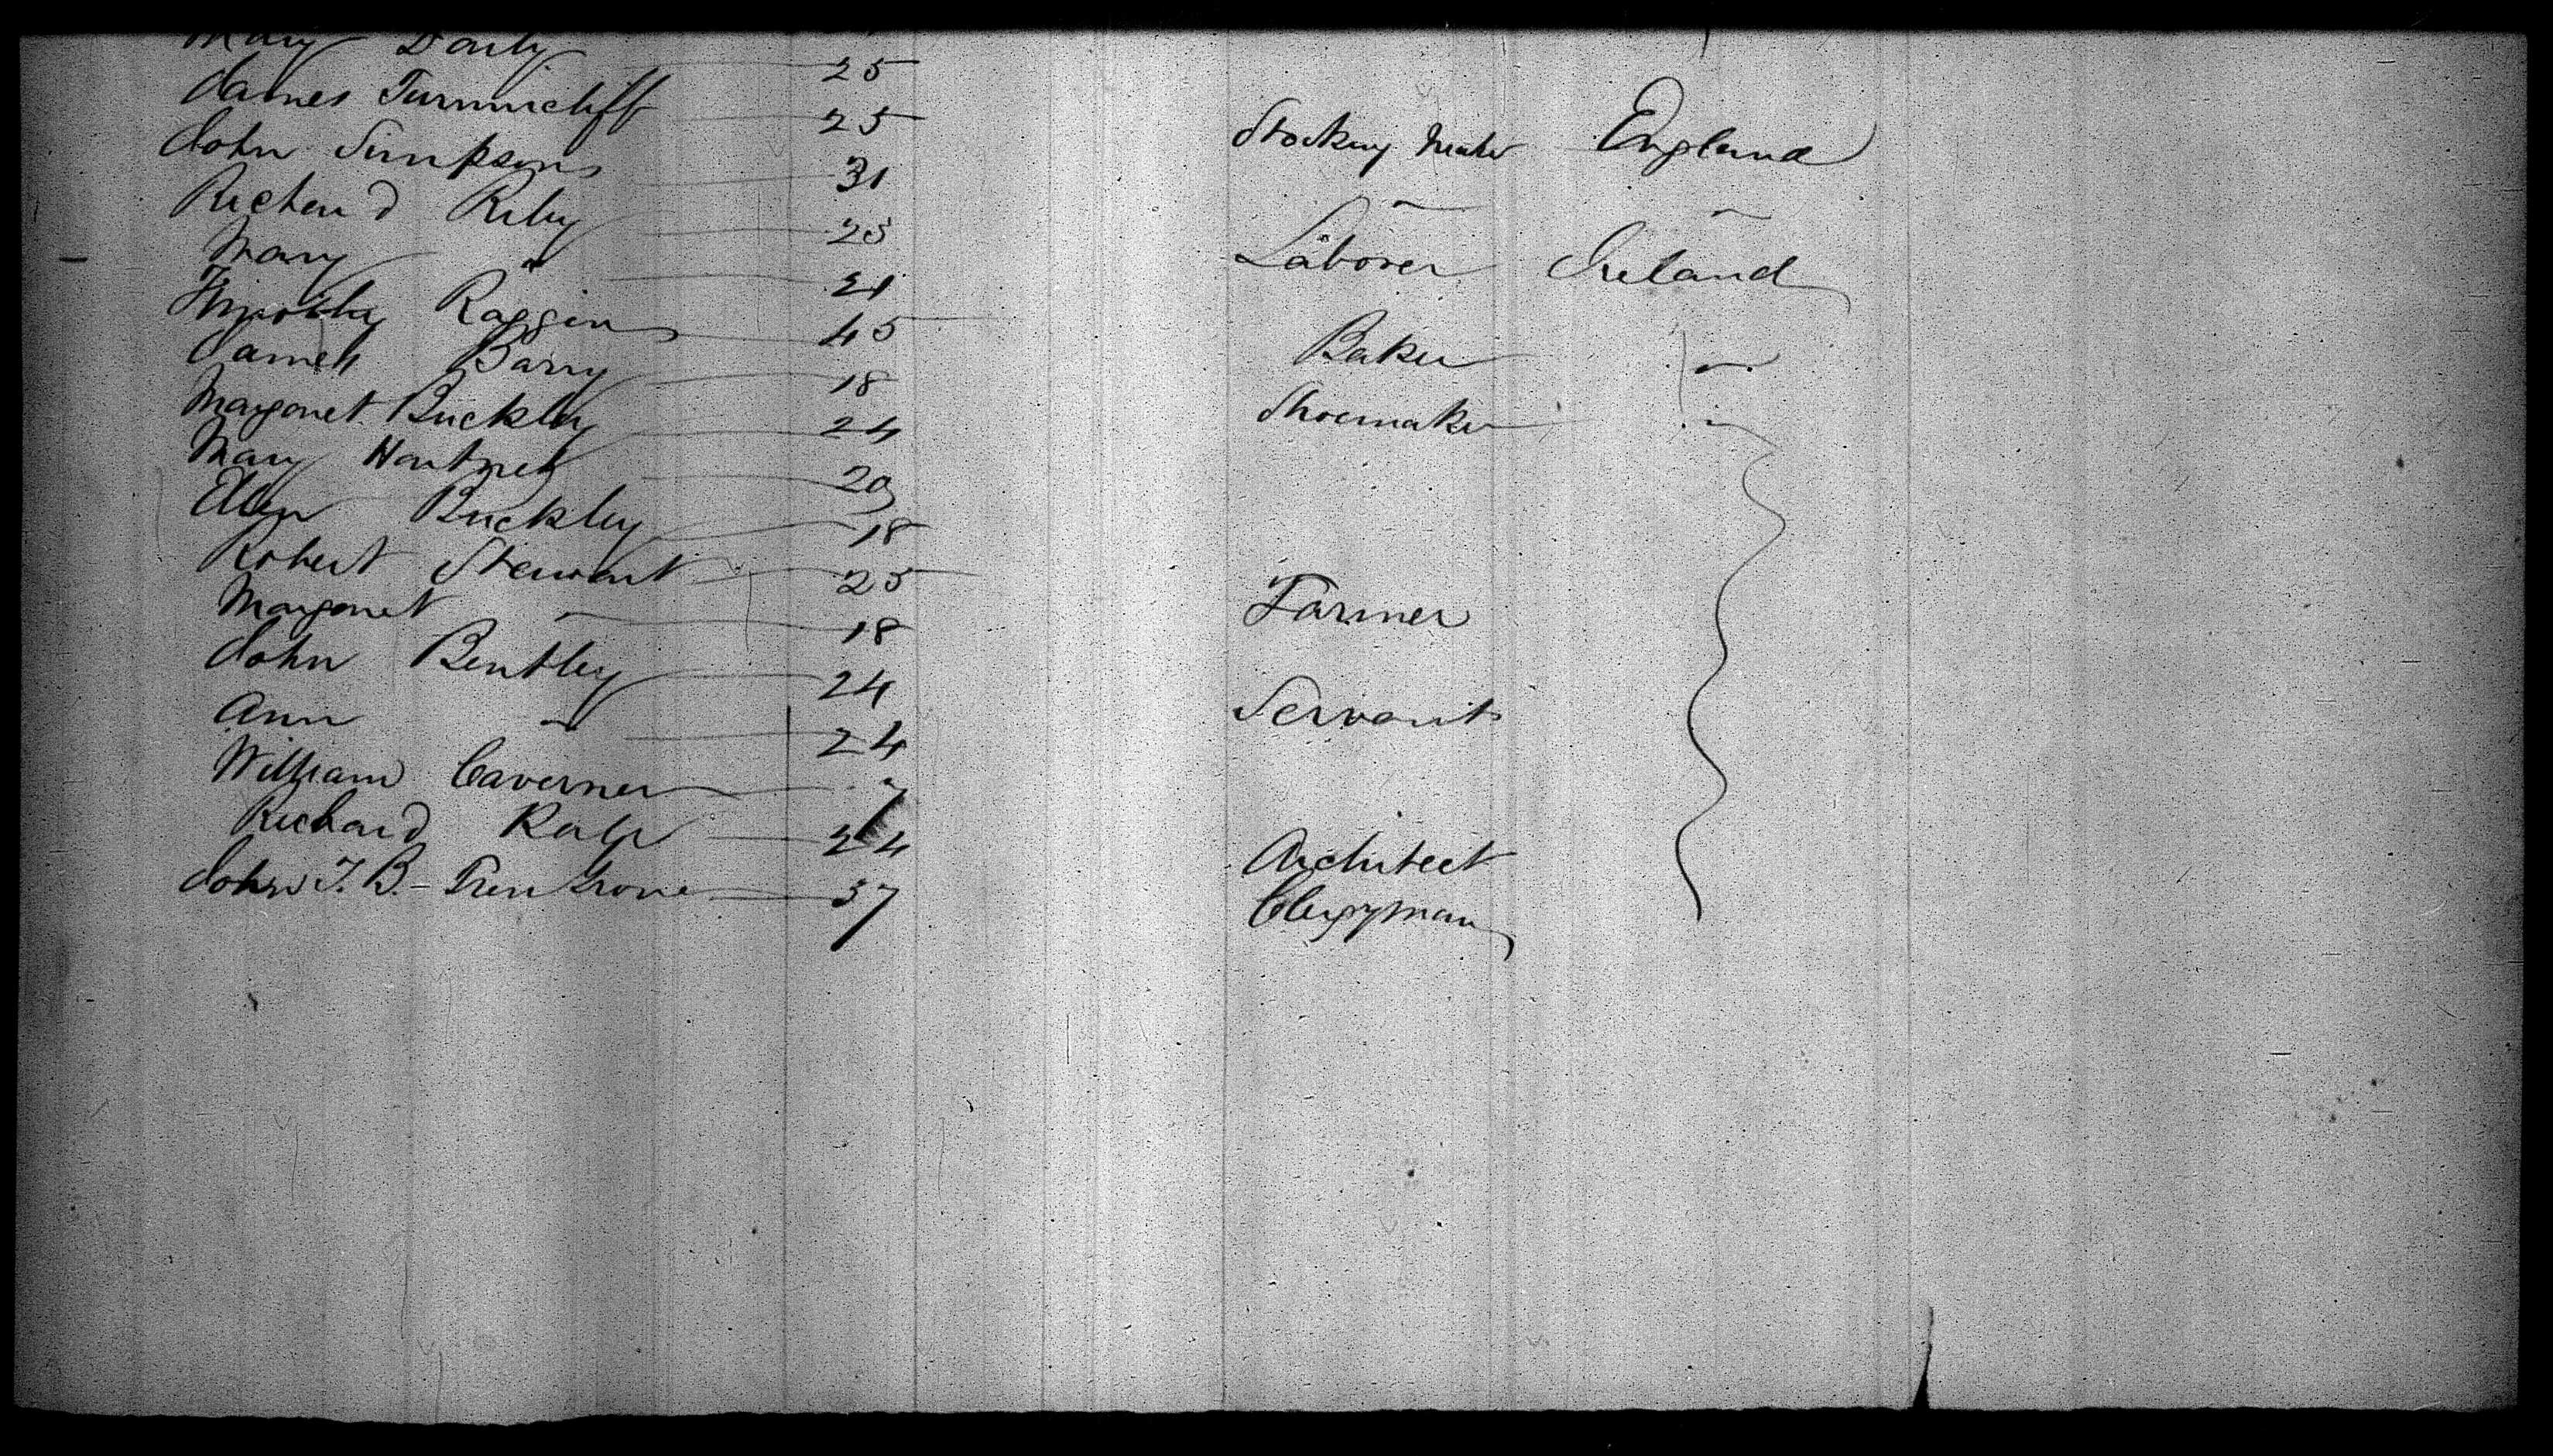 Mary Daily 25
James Turnnicliff 25 Stocking Maker England
John Simpson 31 " "
Richard Riley 25 Laborer Ireland
Mary " 21
Timothy Raggen 45 Baker "
James Barry 18 Shoemaker "
Margaret Buckley 24
Mary Hartnett 20
Ellen Buckley 18
Robert Stewart 25 Farmer
Margaret " 18
John Bentley 24 Servant
Ann " 24
William Caverner 7
Richard 24 Architect
John T. B. 37 Clergyman